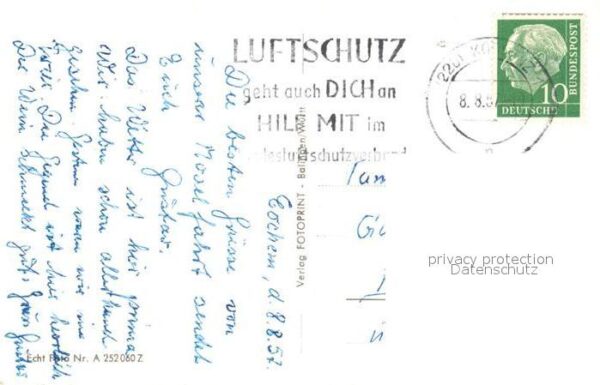 LUFTSCHUTZ
geht auch DICH an
HILF MIT im
desluftschutzverband
(22c)
8. 8. 57
10
DEUTSCHE
BUNDESPOST
Cochem, d. 8.8.57.
Die besten Grüsse von
unser Moselfahrt sendet
Euch
Gustav.
Das Wetter ist hier prima
Wir haben schon allerhand
gesehen. Gestern waren wir in
Trier. Die Gegend ist hier herrlich
Der Wein schmeckt gut.
Verlag FOTOPRINT - Balingen/Württ
Echt Foto Nr. A 252060Z
privacy protection
Datenschutz